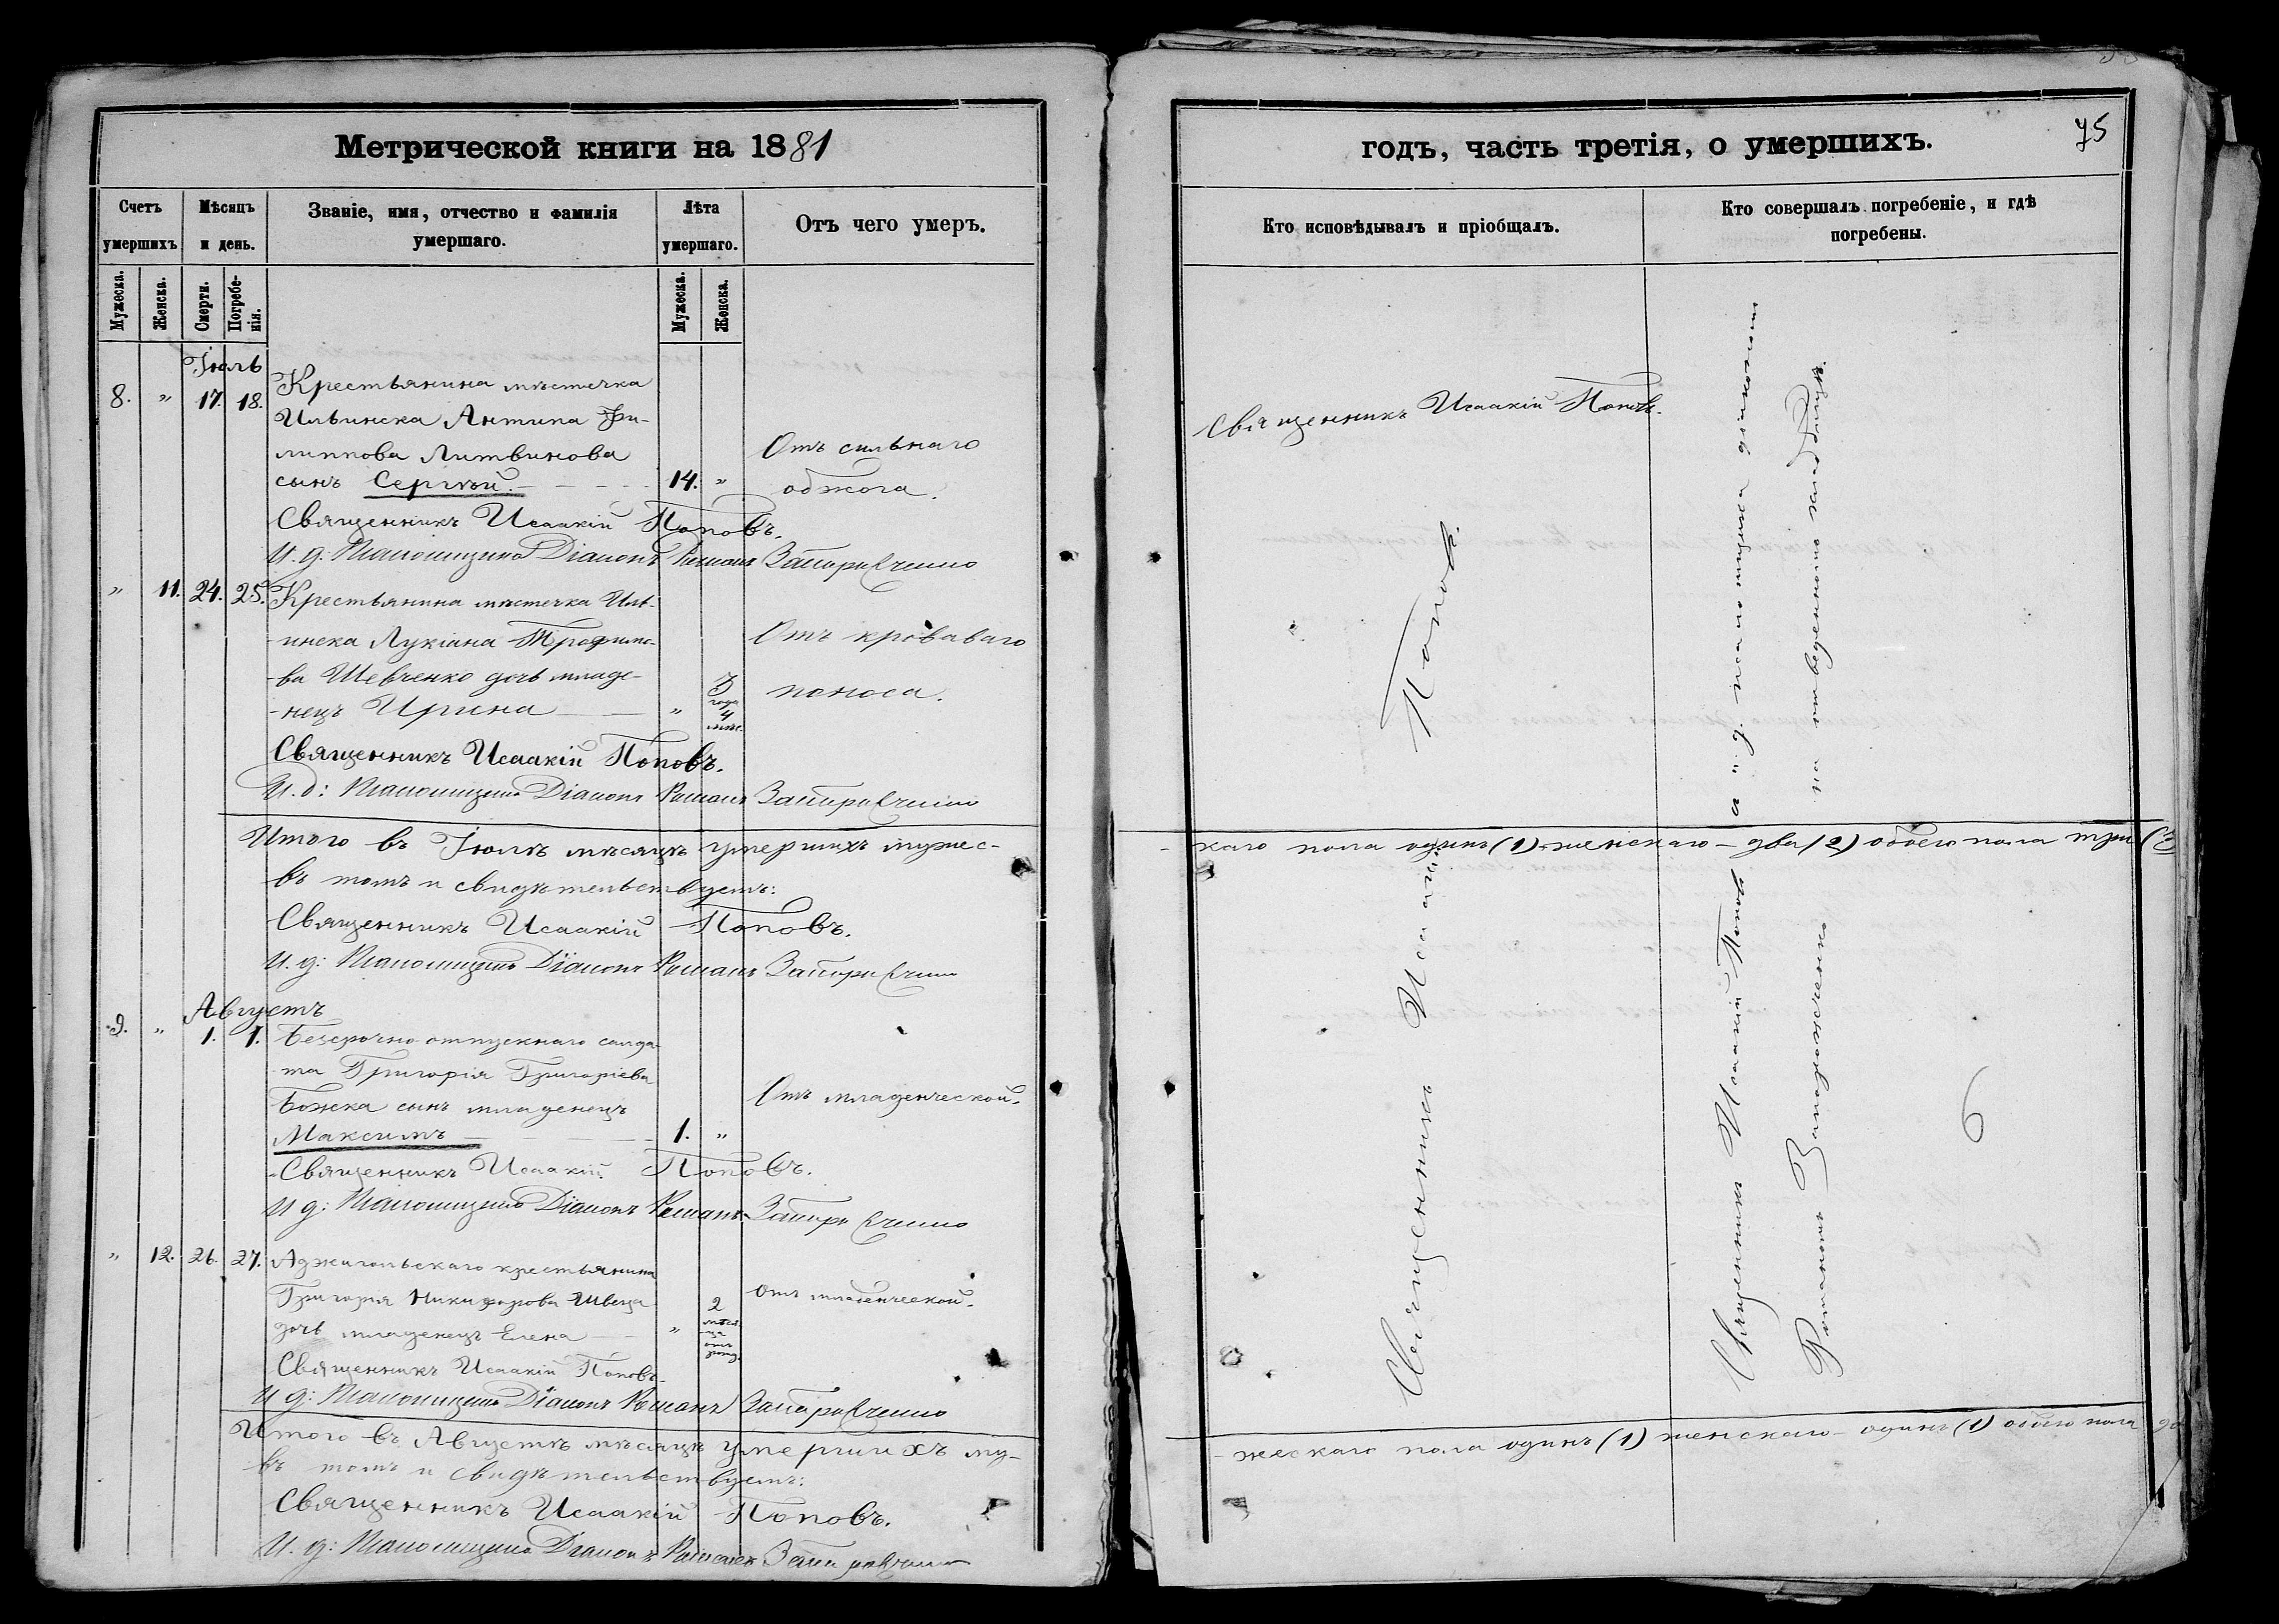 Метрической книги на 1881
Счетъ умершихъ
Мѣсяцъ и день.
Званіе, имя, отчество и фамилія умершаго.
Лѣта умершаго.
Отъ чего умеръ.
Мужеска.
Женска.
Смерти.
Погребенія.
Мужеска.
Женска.
Іюль
8. " 17. 18. Крестьянина мѣстечка
Ильинска Антипа Фи-
липпова Литвинова
Отъ сильнаго
сынъ Сергѣй. 14. " обжога.
Священникъ Исаакій Поповъ.
И. д. Псаломщика Діаконъ Романъ Запорожченко
" 11. 24. 25. Крестьянина мѣстечка Иль-
инска Лукіана Трофимо-
Отъ кроваваго
ва Шевченко дочь младе-
нецъ Ирина " 3 года 4 мѣс. поноса.
Священникъ Исаакій Поповъ.
И. д: Псаломщика Діаконъ Романъ Запорожченко
Итого въ Іюлѣ мѣсяцѣ умершихъ мужес-
въ томъ и свидѣтельствуемъ:
Священникъ Исаакій Поповъ.
И. д: Псаломщика Діаконъ Романъ Запорожченко
Августъ
9. " 1. 1. Безсрочно-отпускнаго солда-
та Григорія Григоріева
Божка сынъ младенецъ
Отъ младенческой.
Максимъ 1. "
Священникъ Исаакій Поповъ.
И д: Псаломщика Діаконъ Романъ Запорожченко
" 12. 26. 27. Аджигольскаго крестьянина
Григорія Никифорова Швеца
Отъ младенческой.
дочь младенецъ Елена " 2 мѣся-ца отъ рожд.
Священникъ Исаакій Поповъ.
И д: Псаломщика Діаконъ Романъ Запорожченко
Итого въ Августѣ мѣсяцѣ умершихъ му-
въ томъ и свидѣтельствуемъ:
Священникъ Исаакій Поповъ.
И. д: Псаломщика Діаконъ Романъ Запорожченко
годъ, часть третія, о умершихъ.
75
Кто исповѣдывалъ и пріобщалъ.
Кто совершалъ погребеніе, и гдѣ погребены.
Священникъ Исаакій Поповъ.
Священникъ Исаакій Поповъ.
Священникъ Исаакій Поповъ и "д. псаломщика діакономъ
Романомъ Запорожченко на отведенномъ кладбищѣ.
каго пола одинъ (1) женскаго - два (2) обоего пола три (3)
жескаго пола одинъ (1) женскаго - одинъ (1) обоего пола